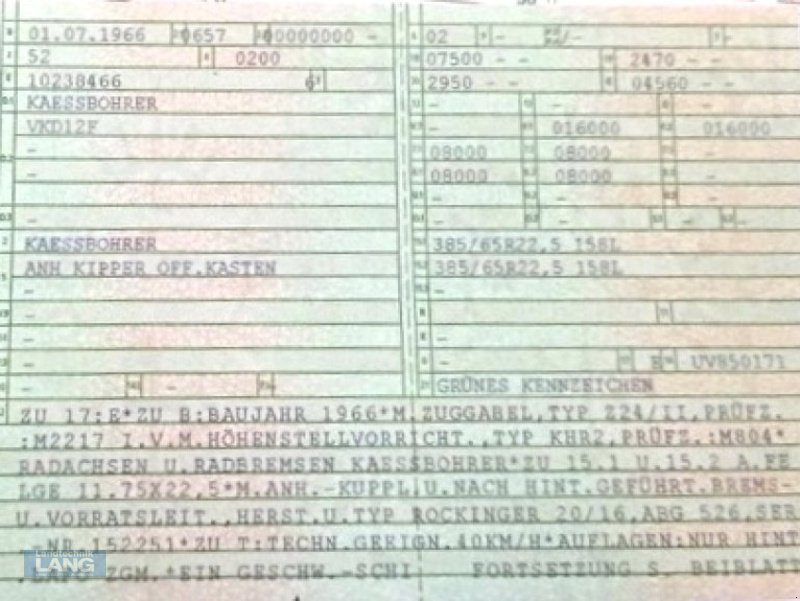 01.07.1966 0657 00000000 -
02 - - -
52 0200
07500 - - 2470 - -
10238466 6
2950 - - 04560 - -
KAESSBOHRER
- - -
VKD12F
- 016000 016000
-
08000 08000 -
-
08000 08000 -
-
- - -
-
- - - -
KAESSBOHRER
385/65R22,5 158L
ANH KIPPER OFF.KASTEN
385/65R22,5 158L
-
-
-
-
-
-
-
- E UV850171
- -
GRÜNES KENNZEICHEN
ZU 17:E*ZU B:BAUJAHR 1966*M.ZUGGABEL,TYP Z24/II,PRÜFZ.
:M2217 I.V.M.HÖHENSTELLVORRICHT.,TYP KHR2,PRÜFZ.:M804*
RADACHSEN U.RADBREMSEN KAESSBOHRER*ZU 15.1 U.15.2 A.FE
LGE 11.75X22,5*M.ANH.-KUPPL.U.NACH HINT.GEFÜHRT.BREMS-
U.VORRATSLEIT.,HERST.U.TYP ROCKINGER 20/16,ABG 526,SER
.-NR 152251*ZU T:TECHN.GEEIGN.40KM/H*AUFLAGEN:NUR HINT
ZGM.*EIN GESCHW.-SCHI FORTSETZUNG S. BEIBLATT
Landtechnik
LANG